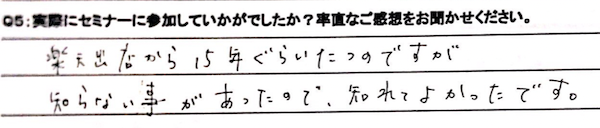 Q5:実際にセミナーに参加していかがでしたか?率直なご感想をお聞かせください。
楽天出店から15年ぐらいたつのですが
知らない事があったので、知れてよかったです。